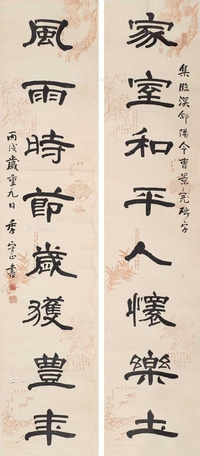 集臨漢郃陽令曹景完碑字
家室和平人懷樂土
風雨時節歲獲豊年
丙戌歲重九日季守正書